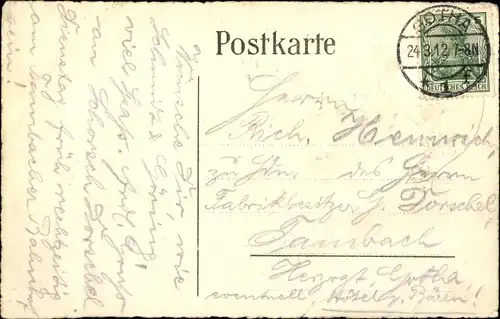 Wünsche Dir, wie
Schmidt &
viel
an Schorsch Dorschel
Dienstag früh rechtzeitig
am Tambacher Bahnhof
sein!
Postkarte
GOTHA
24.3.12.7-8N
DEUTSCHES REICH
5
Herrn
Rich. Hennrich,
zu Hdn. des Herrn
Fabrikbesitzer G. Dorschel,
Tambach
Herzogt. Gotha,
eventuell, Hotel z. Bären!